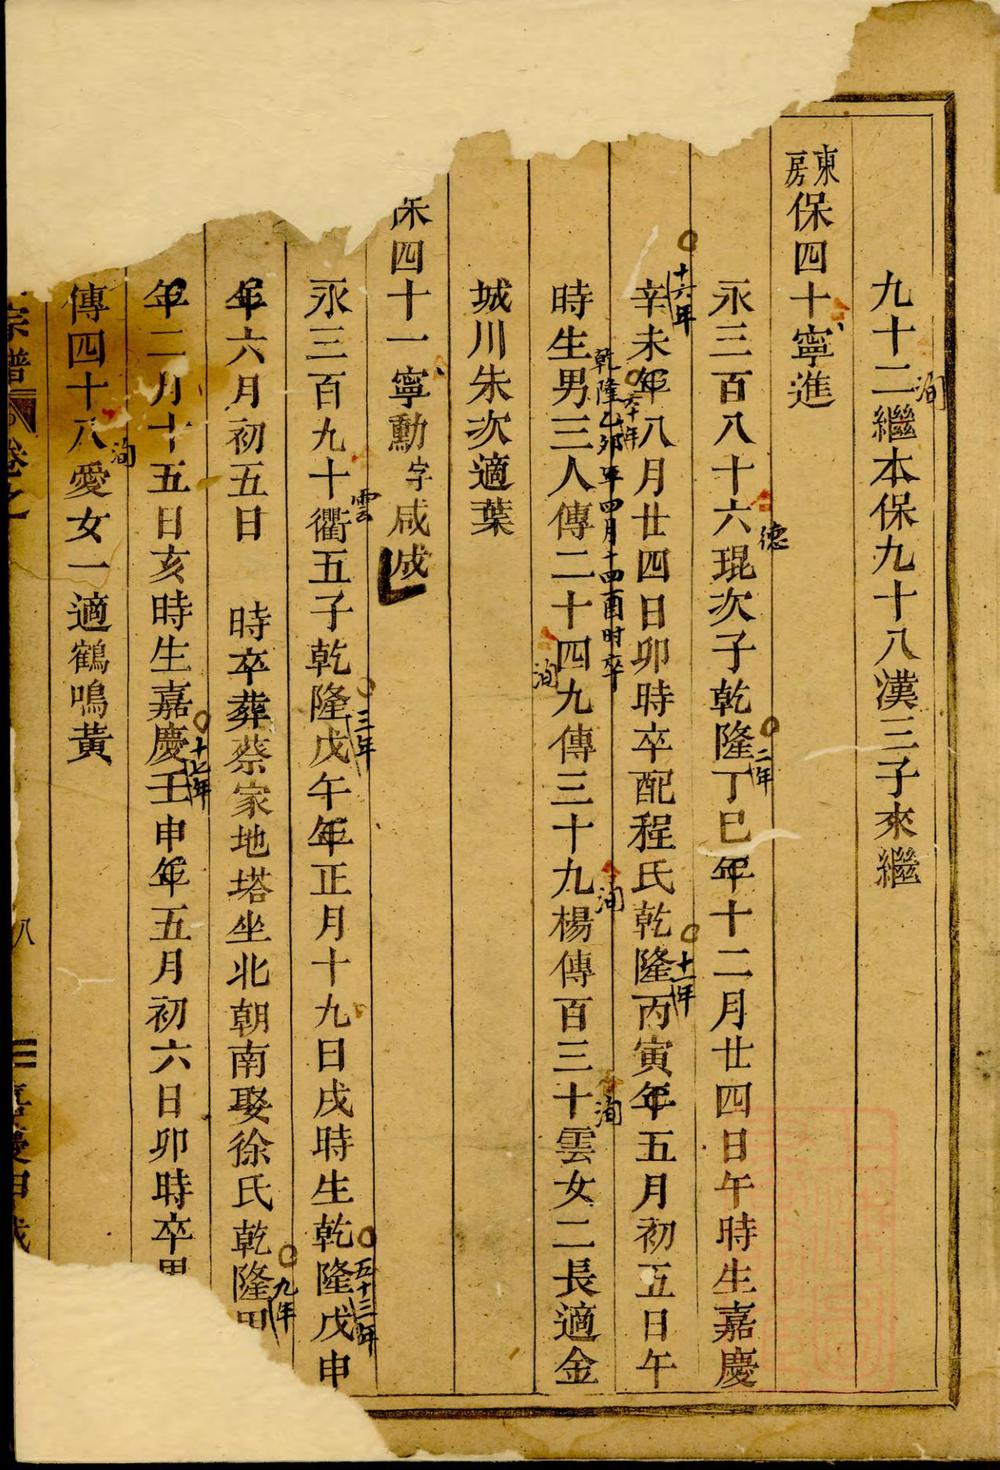 九十二繼本保九十八漢三子來繼
洵
東房保四十寧進
永三百八十六琨次子乾隆丁巳年十二月廿四日午時生嘉慶
德
二年
辛未年八月廿四日卯時卒配程氏乾隆丙寅年五月初五日午
十六年
十一年
乾隆乙卯年四月十四酉時卒
六十年
時生男三人傳二十四九傳三十九楊傳百三十雲女二長適金
洵
洵
洵
城川朱次適葉
保四十一寧勳字咸成
永三百九十衢五子乾隆戊午年正月十九日戌時生乾隆戊申
雲
三年
五十三年
年六月初五日 時卒葬蔡家地塔坐北朝南娶徐氏乾隆甲
九年
年二月十五日亥時生嘉慶壬申年五月初六日卯時卒男
十七年
傳四十八愛女一適鶴鳴黃
洵
宗譜 卷之
八